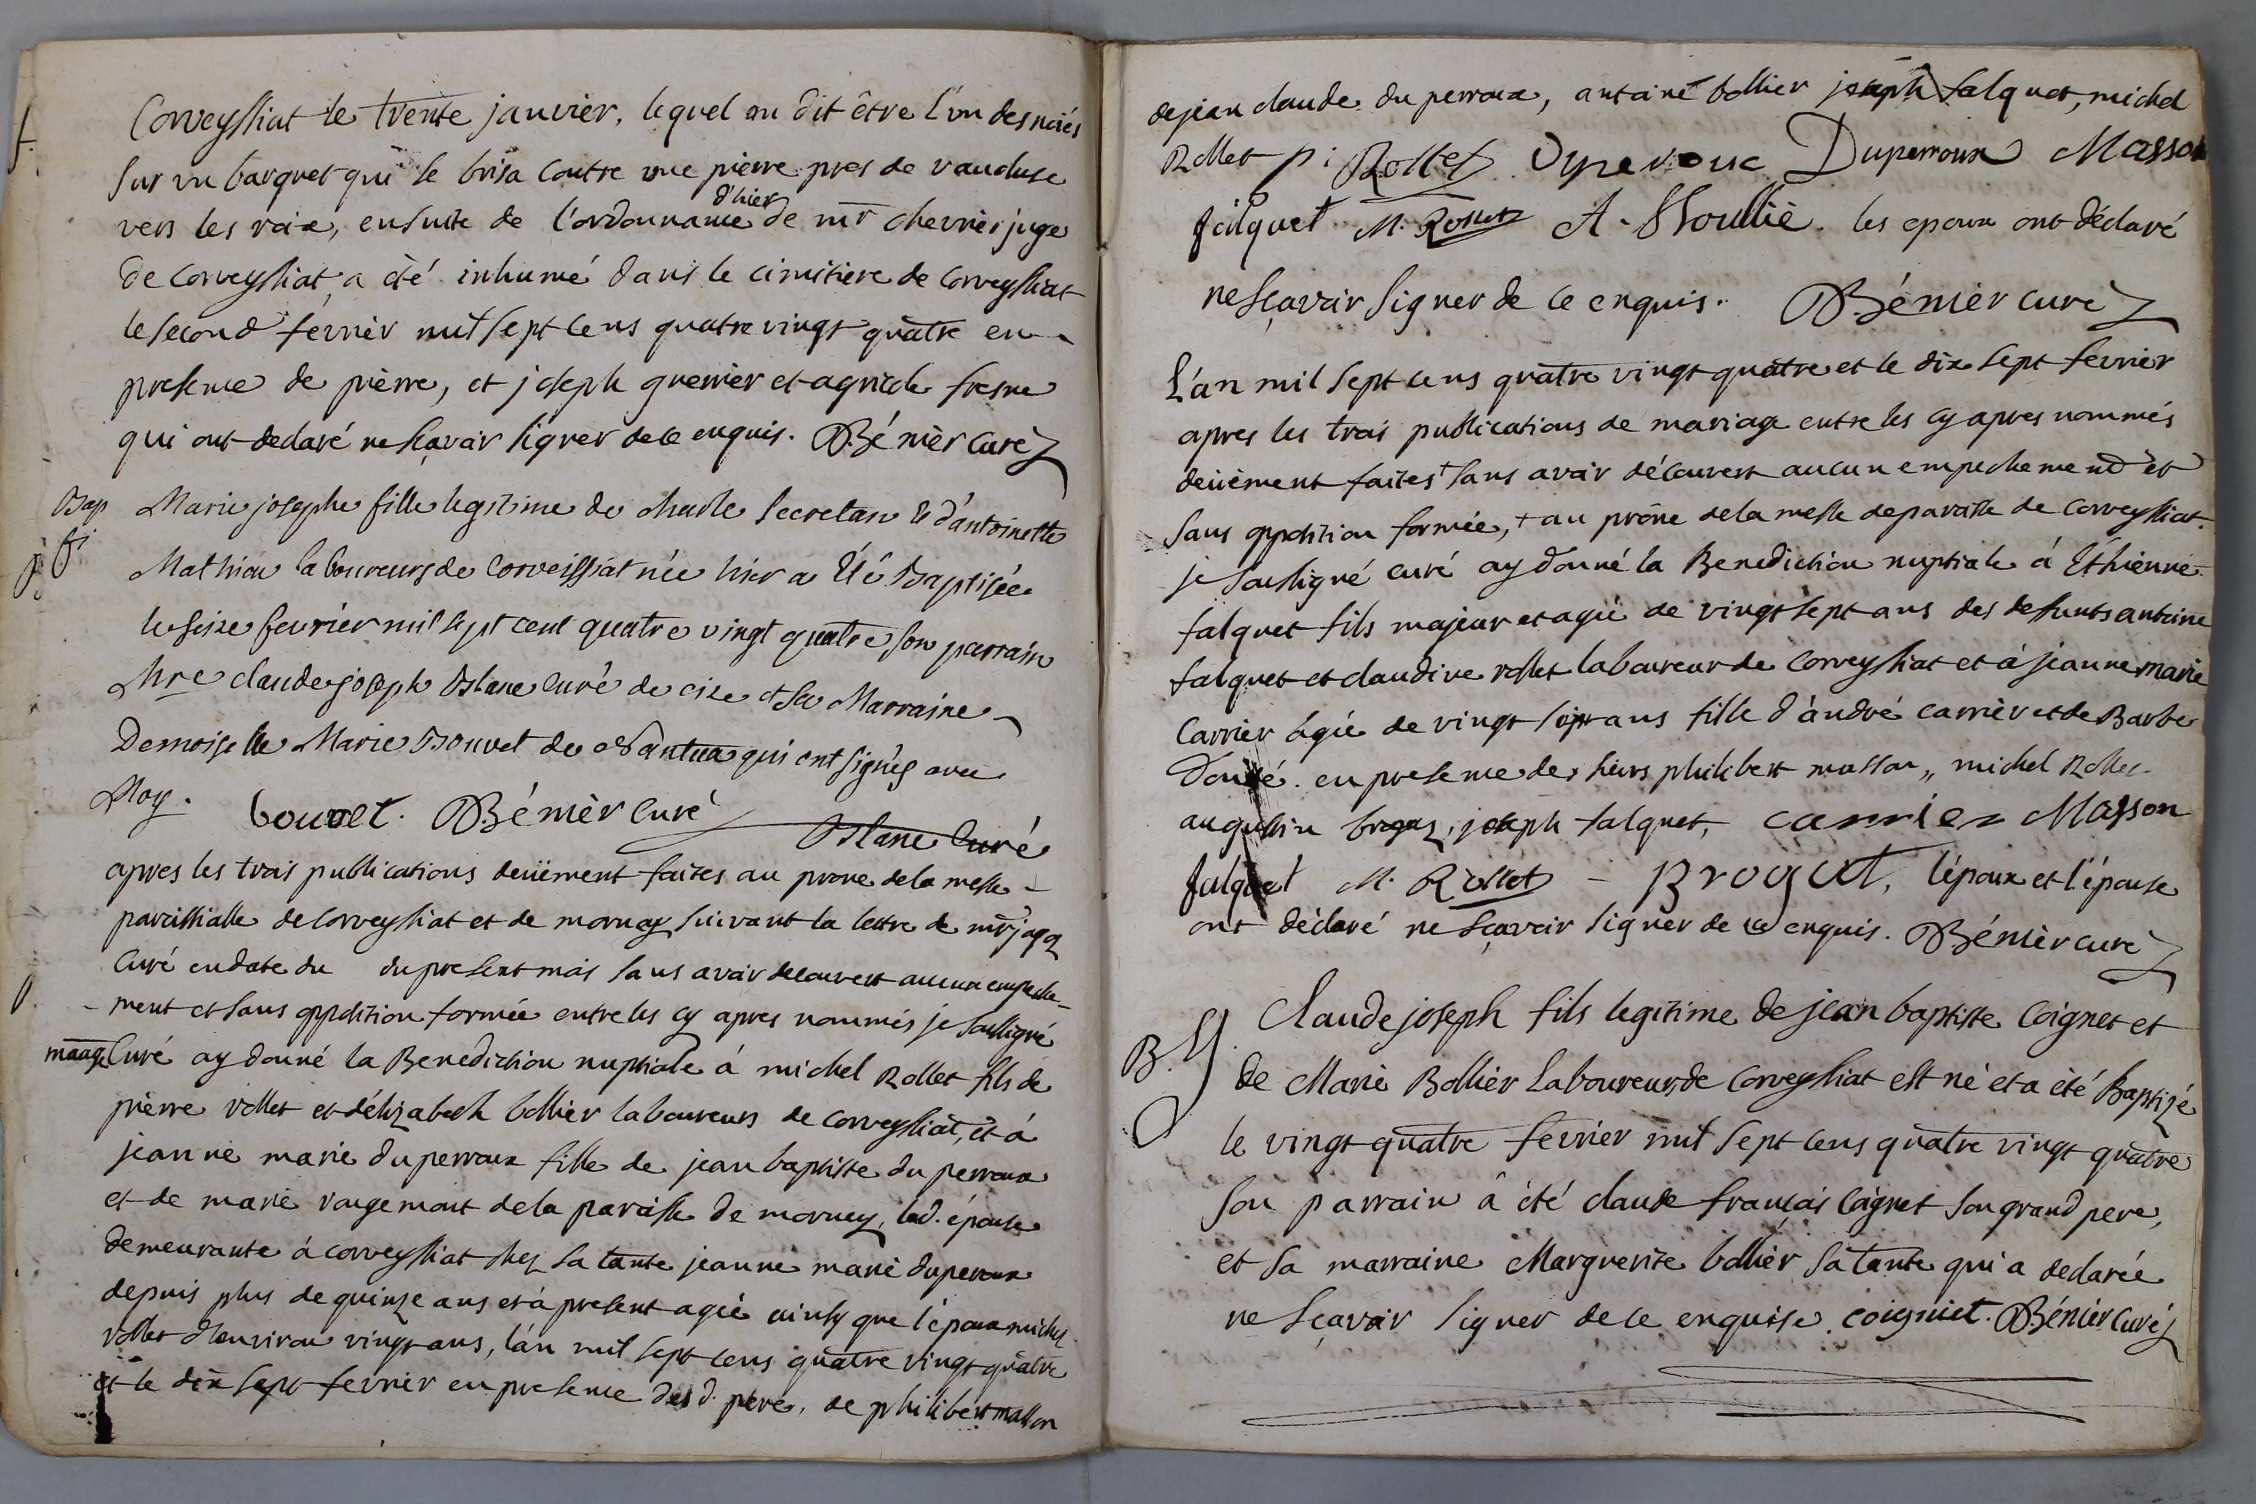 Corveyssiat le trente janvier, lequel on dit être l'un des noiés
sur un barquet qui se brisa contre une pierre pres de vaucluse
d'hier
vers les roix, ensuite de l'ordonnance de mr chevrier juge
de corveyssiat, a été inhumé dans le cimitiere de corveyssiat
le second fevrièr mil sept cens quatre vingt quatre en
presence de pièrre, et joseph guerrier et agricole fresne
qui ont declaré ne sçavoir signer de ce enquis. Bénièr curé
Bap
fi
Marie josephe fille legitime de charle secretan & d'antoinette
Mathieu laboureurs de Corveissiat née hier a Été Baptisée
le seize fevrièr mil sept cent quatre vingt quatre, son parrain
Mre claude joseph Blanc Curé de cize et sa Marraine
Demoiselle Marie Bouvet de Nantua qui ont signés avec
Moy. bouvet. Bénièr Curé Blanc Curé
apres les trois publications deuëment faites au prone de la messe
paroissialle de Corveyssiat et de mornay suivant la lettre de mr
Curé en date du du present mois sans avoir decouvert aucun empeche-
ment et sans opposition formée entre les cy apres nommés je soussigné
maage
Curé ay donné la Benediction nuptiale á michel Rollet fils de
pièrre rollet et d'élizabeth bollier laboureurs de corveyssiat, et á
jeanne marie duperroux fille de jean baptiste du perroux
et de marie rougemont de la paroisse de mornay, lad. épouse
demeurante á corveyssiat chez sa tante jeanne marie duperoux
depuis plus de quinze ans et á present agée ainsy que l'époux michel
rollet d'environ vingt ans, l'an mil sept cens quatre vingt quatre
et le dix sept fevrièr en presence des d. pere, de philibert masson
de jean claude du perroux, antoine bollier joseph falquet, michel
Rollet p: Rollet Duperoux Masson
falquet M. Rollet A. les epoux ont déclaré
ne sçavoir signer de ce enquis. Bénièr curé
L'an mil sept cens quatre vingt quatre et le dix sept fevrier
apres les trois publications de mariage entre les cy apres nommés
deuëment faites + sans avoir découvert aucun empechement et
sans opposition formée, + au prône de la messe de paroisse de Corveyssiat.
je soussigné curé ay donné la Benediction nuptiale á Éthienne
falquet fils majeur et agé de vingt sept ans des deffunts antoine
falquet et claudine rollet laboureur de Corveyssiat et á jeanne marie
Carrier agée de vingt ans fille d'andré carrièr et de Barbe
en presence des sieurs philibert masson, michel Rollet
augustin joseph falquet, carrier Masson
falquet M. Rollet Broguet, l'époux et l'épouse
ont déclaré ne sçavoir signer de ce enquis. Bénièr curé
B.
Claude joseph fils legitime de jean baptiste Coignet et
de Marie Bollièr Laboureurs de Corveyssiat est né et a été Baptizé
le vingt quatre fevrier mil sept cens quatre vingt quatre
son parrain á été claude françois Coignet son grand pere,
et sa marraine Marguerite bollièr sa tante qui a declarée
ne sçavoir signer de ce enquise. coigniet. Bénièr Curé